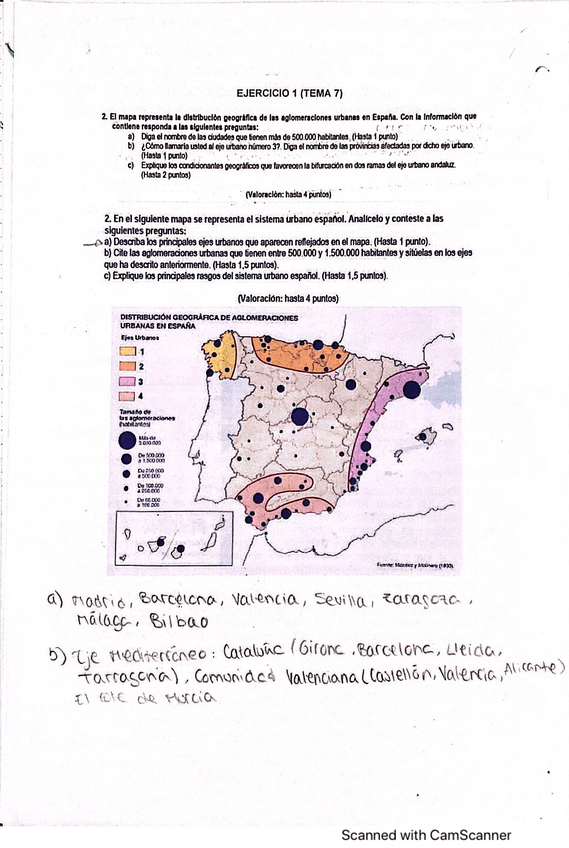 EJERCICIO 1 (TEMA 7)
2. El mapa representa la distribución geográfica de las aglomeraciones urbanas en España. Con la información que
contiene responda a las siguientes preguntas:
a) Diga el nombre de las ciudades que tienen más de 500.000 habitantes. (Hasta 1 punto)
b) ¿Cómo llamaría usted al eje urbano número 3?. Diga el nombre de las provincias afectadas por dicho eje urbano.
(Hasta 1 punto)
c) Explique los condicionantes geográficos que favorecen la bifurcación en dos ramas del eje urbano andaluz.
(Hasta 2 puntos)
(Valoración: hasta 4 puntos)
2. En el siguiente mapa se representa el sistema urbano español. Analícelo y conteste a las
siguientes preguntas:
a) Describa los principales ejes urbanos que aparecen reflejados en el mapa. (Hasta 1 punto).
b) Cite las aglomeraciones urbanas que tienen entre 500.000 y 1.500.000 habitantes y sitúelas en los ejes
que ha descrito anteriormente. (Hasta 1,5 puntos).
c) Explique los principales rasgos del sistema urbano español. (Hasta 1,5 puntos).
(Valoración: hasta 4 puntos)
DISTRIBUCIÓN GEOGRÁFICA DE AGLOMERACIONES
URBANAS EN ESPAÑA
Ejes Urbanos
1
2
3
4
Tamaño de
las aglomeraciones
(habitantes)
Más de
De 500.000
a 1.500.000
De 250.000
a 500.000
De 100.000
a 250.000
De 50.000
a 100.000
Fuente: Méndez y Molinero (1993).
a) Madrid, Barcelona, Valencia, Sevilla, Zaragoza,
Málaga, Bilbao
b) Eje Mediterráneo: Cataluña (Girona, Barcelona, Lleida,
Tarragona), Comunidad Valenciana (Castellón, Valencia, Alicante)
de Murcia
Scanned with CamScanner